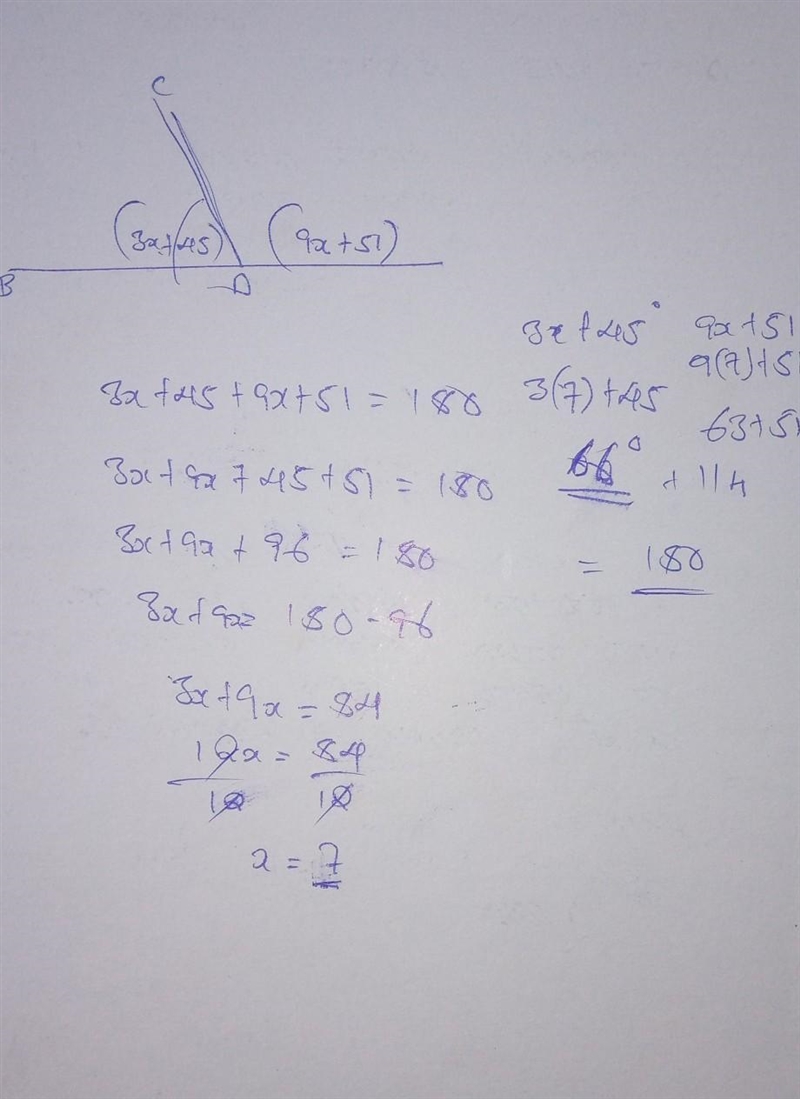 C
(3x+45) (9x+51)
B D
3x+45+9x+51=180
3x+9x+45+51=180
3x+9x+96=180
3x+9x=180-96
3x+9x=84
12x=84
12 12
x=7
3x+45° 9x+51
3(7)+45 9(7)+51
63+51
66° +114
=180